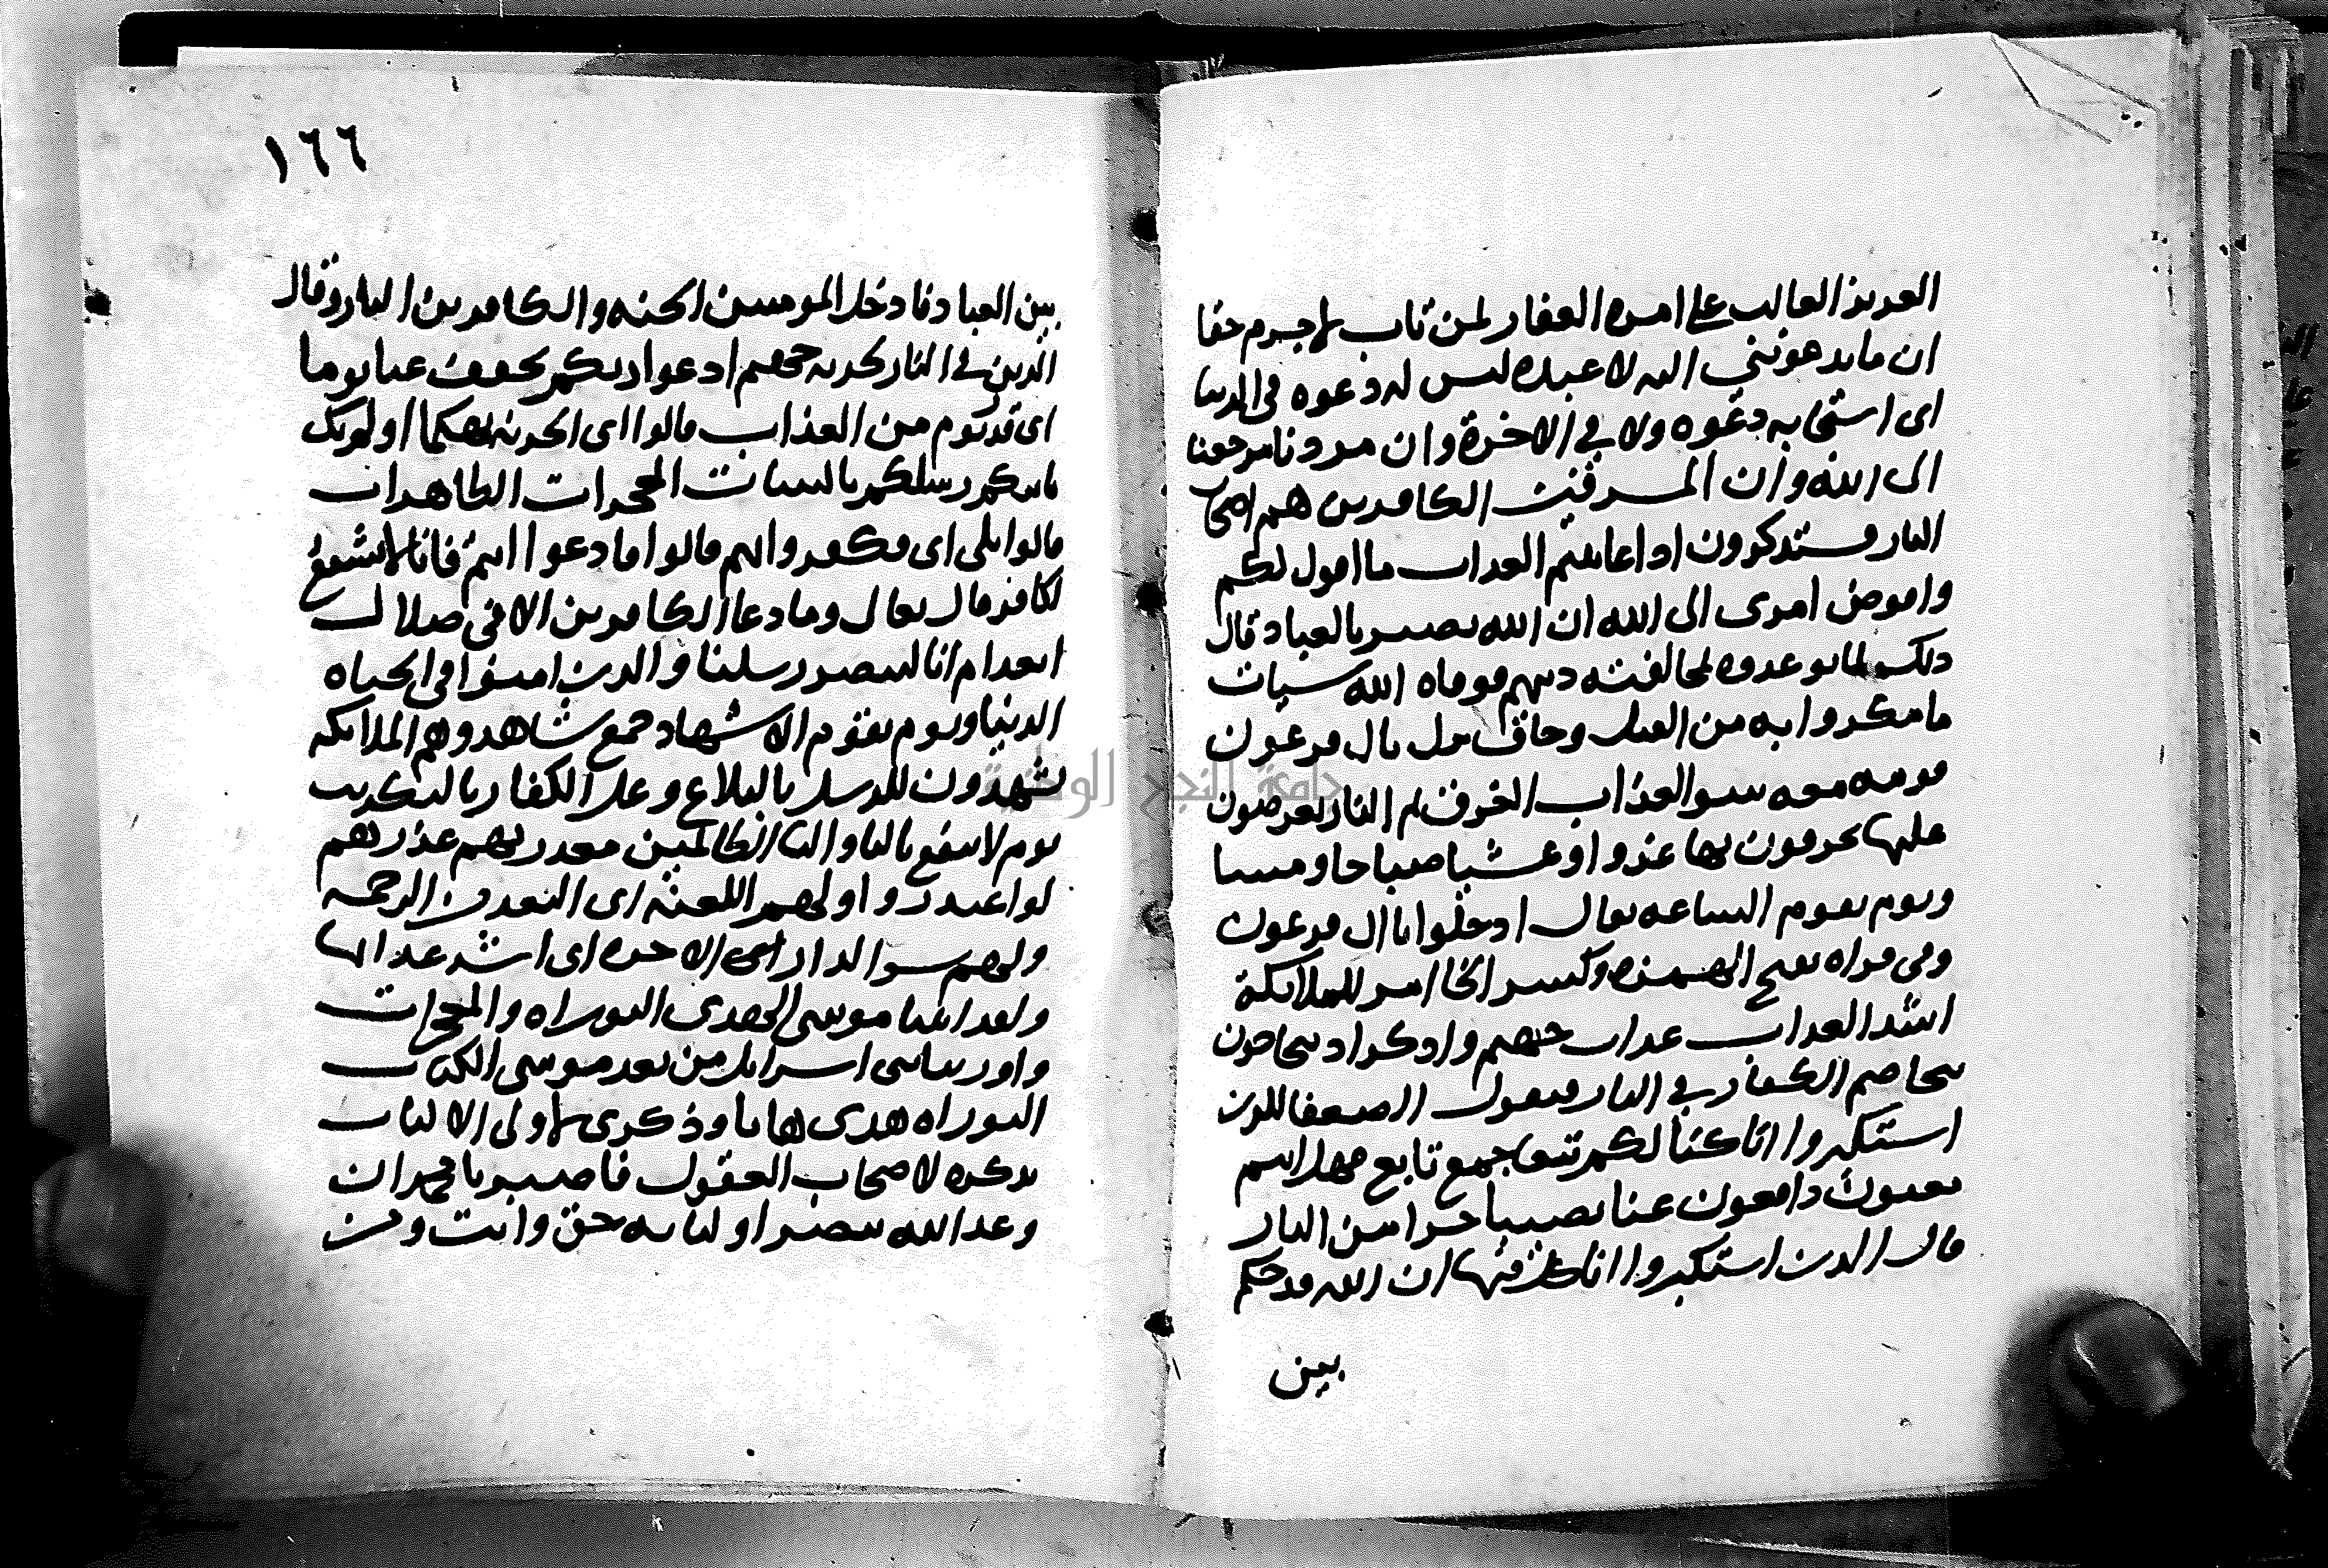 العزيز الغالب على امره الغفار لمن تاب لاجرم حقا
ان ما تدعونني اليه لاعبده ليس له دعوه في الدنيا
اى استجابه دعوه ولا في الاخرة وان مردنا مرجعنا
الى الله وان المسرفين الكافرين هم اصحاب
النار فستذكرون اذا عاينتم العذاب ما اقول لكم
وافوض امرى الى الله ان الله بصير بالعباد قال
ذلك لما توعدوه لمخالفته دينهم فوقاه الله سيات
ما مكروا به من القتل وحاق نزل بال فرعون
قومه معه سو العذاب الغرق ثم النار يعرضون
عليها يحرقون بها غدوا وعشيا صباحا ومسا
ويوم تقوم الساعه يقال ادخلوا يا ال فرعون
وفى قراه بفتح الهمزه وكسر الخا امر للملائكة
اشد العذاب عذاب جهنم واذكر اذ يتحاجون
يتخاصم الكفار في النار فيقول الضعفا للذين
استكبروا انا كنا لكم تبعا جمع تابع فهل انتم
مغنون دافعون عنا نصيبا جزا من النار
قال الذين استكبروا انا كل فيها ان الله قد حكم
بين
١٦٦
بين العباد فادخل المومنين الجنه والكافرين النار وقال
الذين في النار لخزنه جهنم ادعوا ربكم يخفف عنا يوما
اى قدر يوم من العذاب قالوا اى الخزنه تهكما اولم تك
تاتيكم رسلكم بالبينات المعجزات الظاهرات
قالوا بلى اى فكفروا بهم قالوا فادعوا انتم فانا لا نشفع
لكافر قال تعالى وما دعا الكافرين الا في ضلال
انعدام انا لننصر رسلنا والذين امنوا في الحياه
الدنيا ويوم يقوم الاشهاد جمع شاهد وهم الملائكه
يشهدون للرسل بالبلاغ وعلى الكفار بالتكذيب
يوم لا ينفع باليا والتا الظالمين معذرتهم عذرهم
لو اعتذروا ولهم اللعنة اى البعد من الرحمه
ولهم سو الدار اى الاخره اى اشد عذابها
ولقد اتينا موسى الهدى التوراه والمعجزات
واورثنا بنى اسرايل من بعد موسى الكتاب
التوراه هدى هاديا وذكرى لاولى الالباب
تذكره لاصحاب العقول فاصبر يا محمد ان
وعد الله بنصر اوليايه حق وانت ومن
جامعة النجاح الوطنية